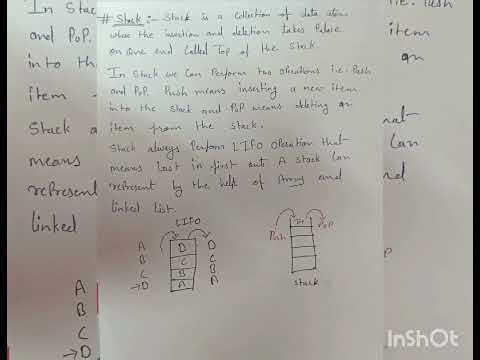 # Stack :- Stack is a collection of data item
where the insertion and deletion takes Palace
on one end called Top of the Stack.
In Stack we Can Perform two operations i.e. Push
and PoP. Push means inserting a new item
into the stack and PoP means deleting an
item from the stack.
Stack always Perform LIFO operation that
means Last in first out. A stack Can
represent by the help of Array and
linked list.
LIFO
A D D
B C C
C B B
→D A A
Push PoP
Stack
In Stack
and PoP.
into the
item
Stack a
means
represent
linked
A
B
C
→D
i.e. Push
item
an
Can
nd
InShOt